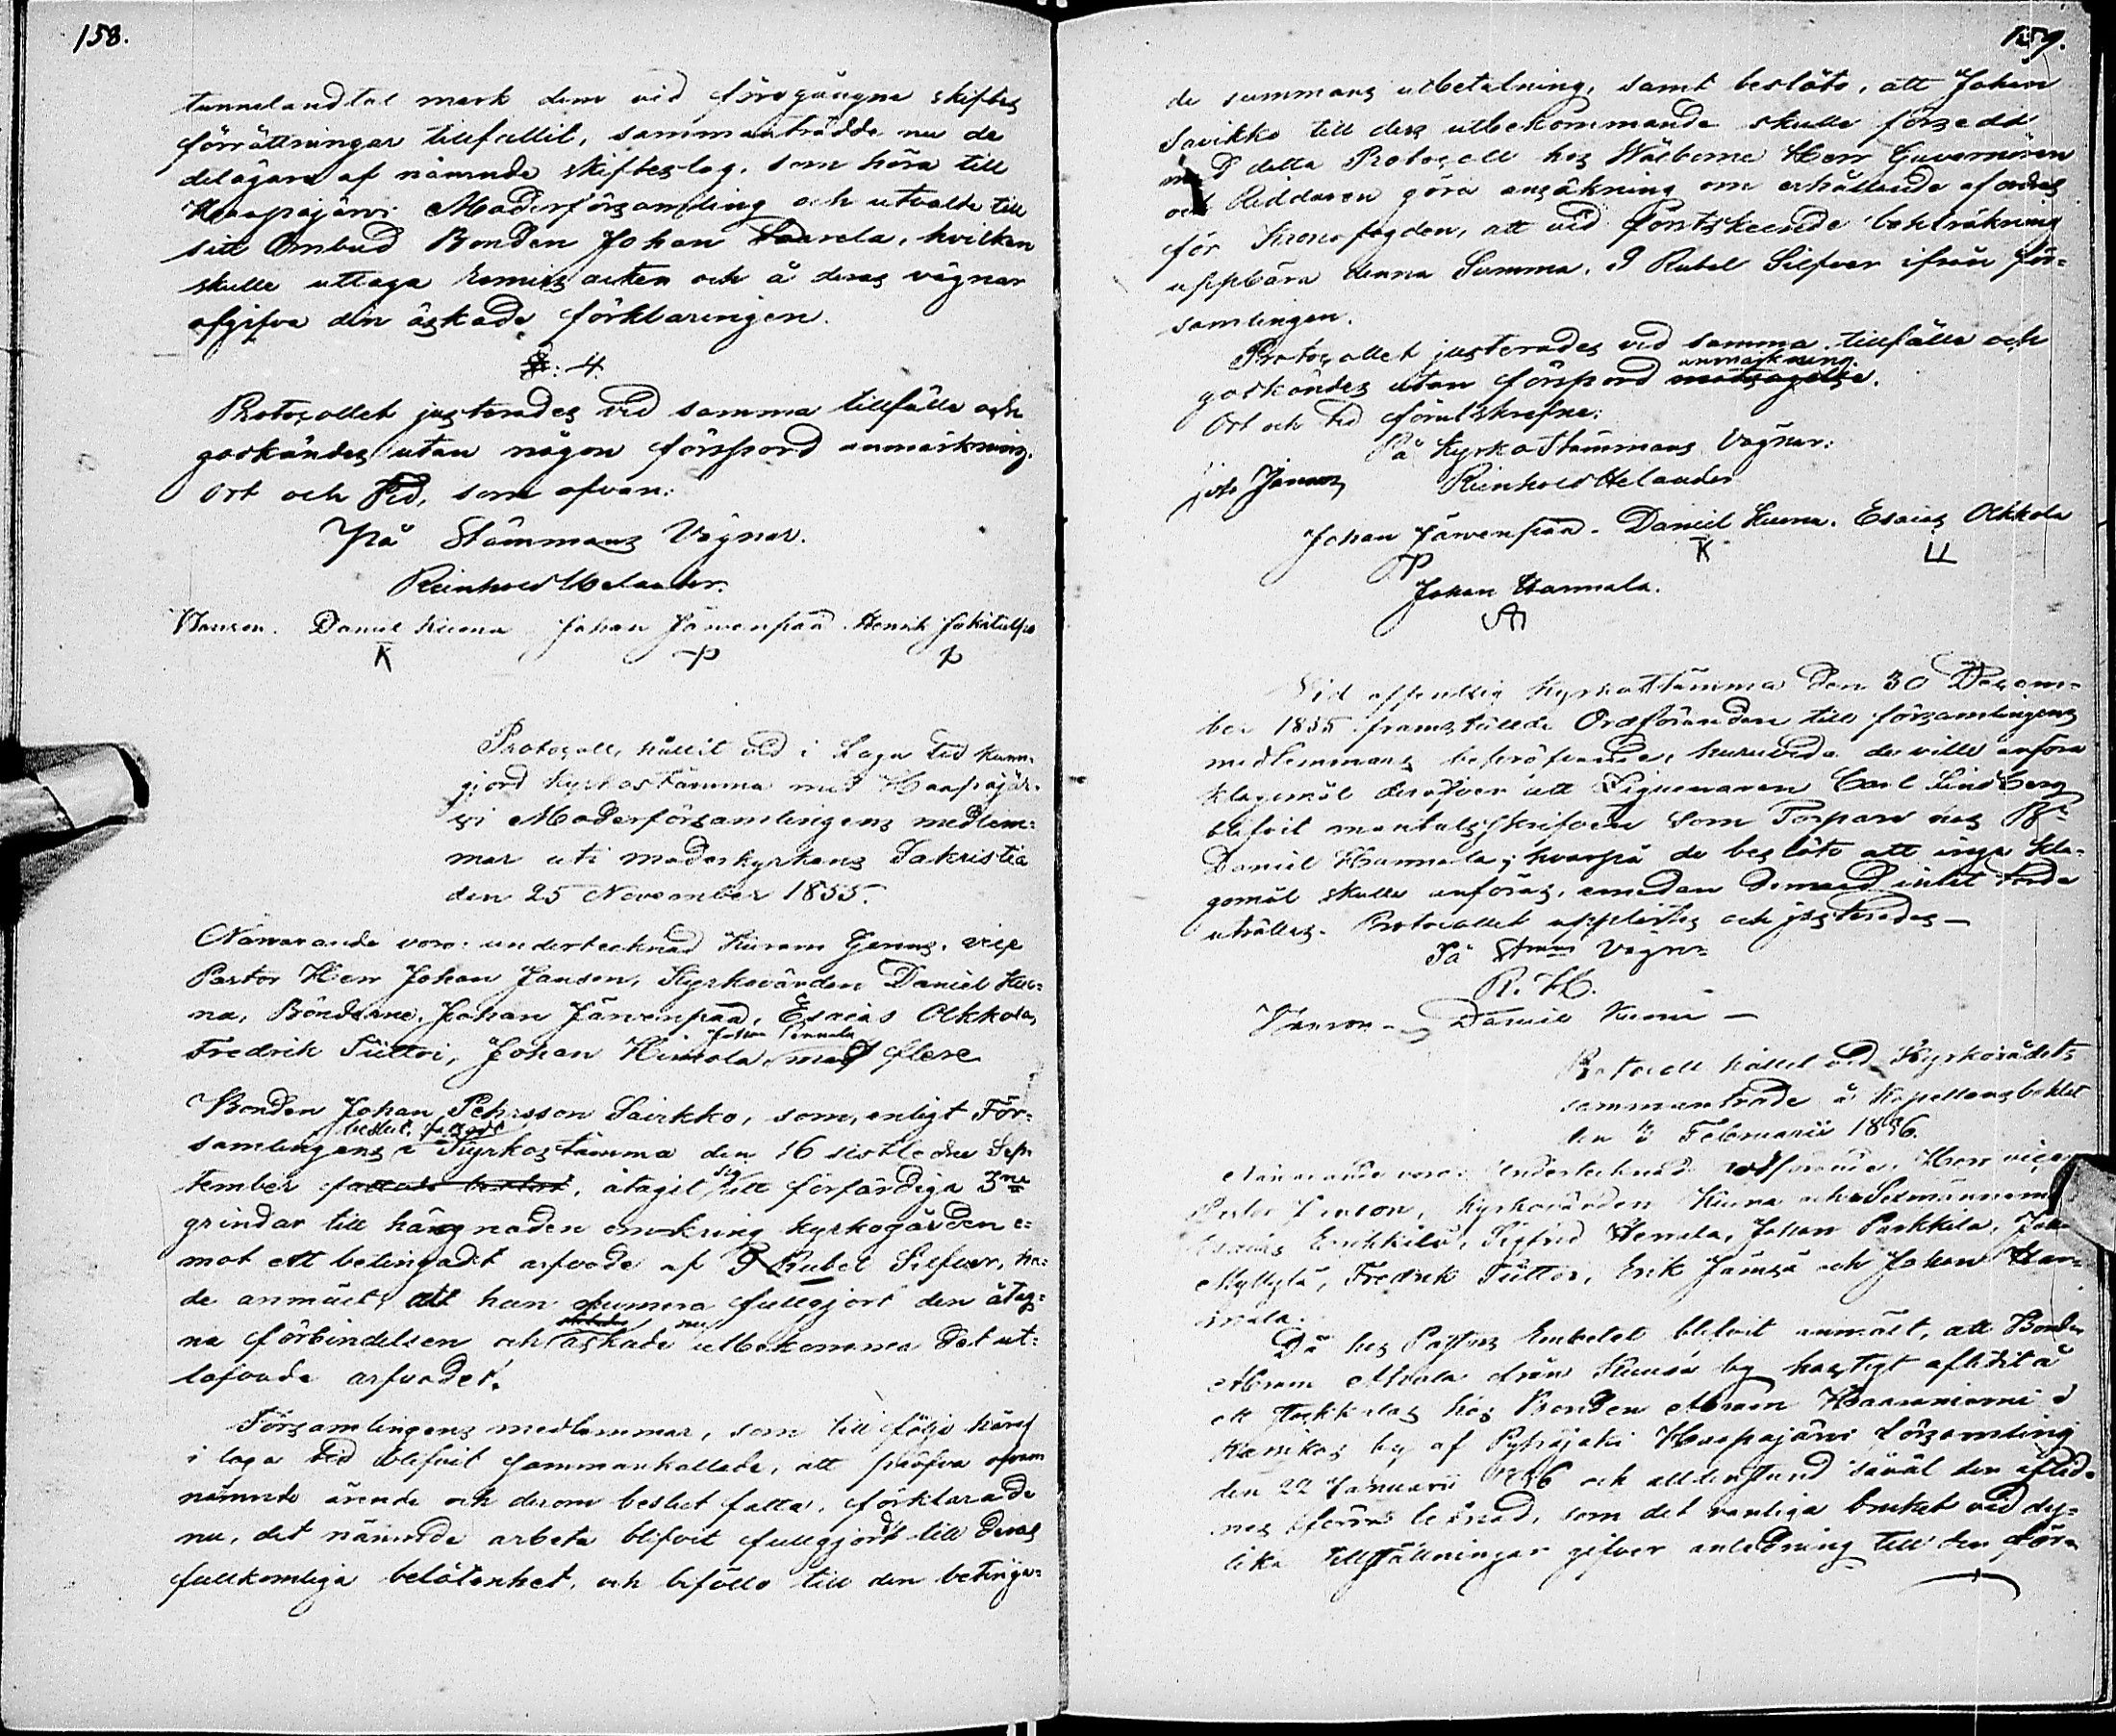 158.
tunnelandtal mark dem vid föregångne skiftes
förrättningar tillfallit, sammanträdde nu de
delägare af nämnde skifteslag, som höra till
Haapajärvi Moderförsamling och utvalde till
sitt Ombud Bonden Johan Saarela, hvilken
skulle uttaga Remiss acten och å deras vägnar
afgifva den äskade förklaringen.
§: 4.
Protocollet justerades vid samma tillfälle och
godkändes utan någon förspord anmärkning.
Ort och Tid, som ofvan:
På Stämmans Vägnar.
Reinhold Helander.
Janson. Daniel Kuona Johan Järvenpää Henrik Jokitulppo
K P P
Protocoll, hållit vid i Laga tid kun-
gjord Kyrkostämma med Haapajär-
vi Moderförsamlingens medlem-
mar uti moderkyrkans Sakristia
den 25 November 1855.
Närvarande voro: undertecknad Kuram Gerens, vice
Pastor Herr Johan Janson, Kyrkovärden Daniel Kuo-
na, Bönderne, Johan Järvenpää, Esaias Olkkola,
Johan Pennala
Fredrik Tüttoi, Johan Himola, med flere
Bonden Johan Pehrsson Savikko, som, enligt För-
beslut, fattadt
samlingens i Kyrkostämma den 16 sistledne Sep-
sig
tember fattade beslut, åtagit att förfärdiga 3ne
grindar till hägnaden omkring kyrkogården e-
mot ett betingadt arfvode af 9 Rubel Silfver, ha-
de anmält, att han numera fullgjort den åtag-
nu
na förbindelsen och äskade utbekomma det ut-
lofvade arfvodet.
Församlingens medlemmar, som till följe häraf
i laga tid blifvit sammankallade, att pröfva ofvan
nämnde ärende och derom beslut fatta, förklarade
nu, det nämnde arbete blifvit fullgjordt till deras
fullkomliga belåtenhet, och biföllo till den betinga-
159.
de summans utbetalning, samt beslöto, att Johan
Savikko till dess utbekommande skulle försedd
med detta Protocoll hos Wälborne Herr Guvernören
och Riddaren göra ansökning om erhållande af ordres
för Kronofogden, att vid skeende
uppbära denna Summa, 9 Rubel Silfver ifrån för-
samlingen.
Protocollet justerades vid samma tillfälle och
anmärkning
godkändes utan förspord motsägelse.
Ort och tid förutskrefne:
På Kyrkostämmans Vägnar:
Reinhold Helander
Joh. Janson
Johan Järvenpää. Daniel Kuona. Esaias Olkkola
P K
Johan Hannala.
Vid offentlig Kyrkostämma den 30 Decem-
ber 1855 framställde Ordföranden till församlingens
medlemmars bepröfvande, huruvida de ville anföra
klagomål deröfver att Ziguenaren Carl Lindberg
blifvit mantalsskrifven som Torpare hos Bn
Daniel Hannala; hvarpå de beslöto att inga kla-
gomål skulle anföras, emedan dermed intet torde
uträttas. Protocollet upplästes och justerades—
På Stmns Vägnr
R. H.
Janson — Daniel Kuona —
Protocoll hållet vid Kyrkorådets
sammanträde å Kapellansbohlet
den 3 Februarii 1856.
Närvarande voro: Undertecknad ordförande, Herr vice
Pastor Janson, Kyrkovärden Kuona och Sexmännerne
Esaias Erikkilä, Sigfrid Hemola, Johan Parkkila, Johan
Myllylä, Fredrik Tüttoi, Erik Jämsä och Johan Han-
nala.
Då hos Pastors Embetet blifvit anmält, att Bonden
Abram från Kuusa by hastigt aflidit å
ett hos Bonden Abram Haaraniemi i
by af Pyhäjoki Haapajärvi församling
den 22 Januarii 1856 och alldenstund såväl den aflid-
nes förra lefnad, som det vanliga bruket vid dy-
lika tillställningar gifver anledning till den för-